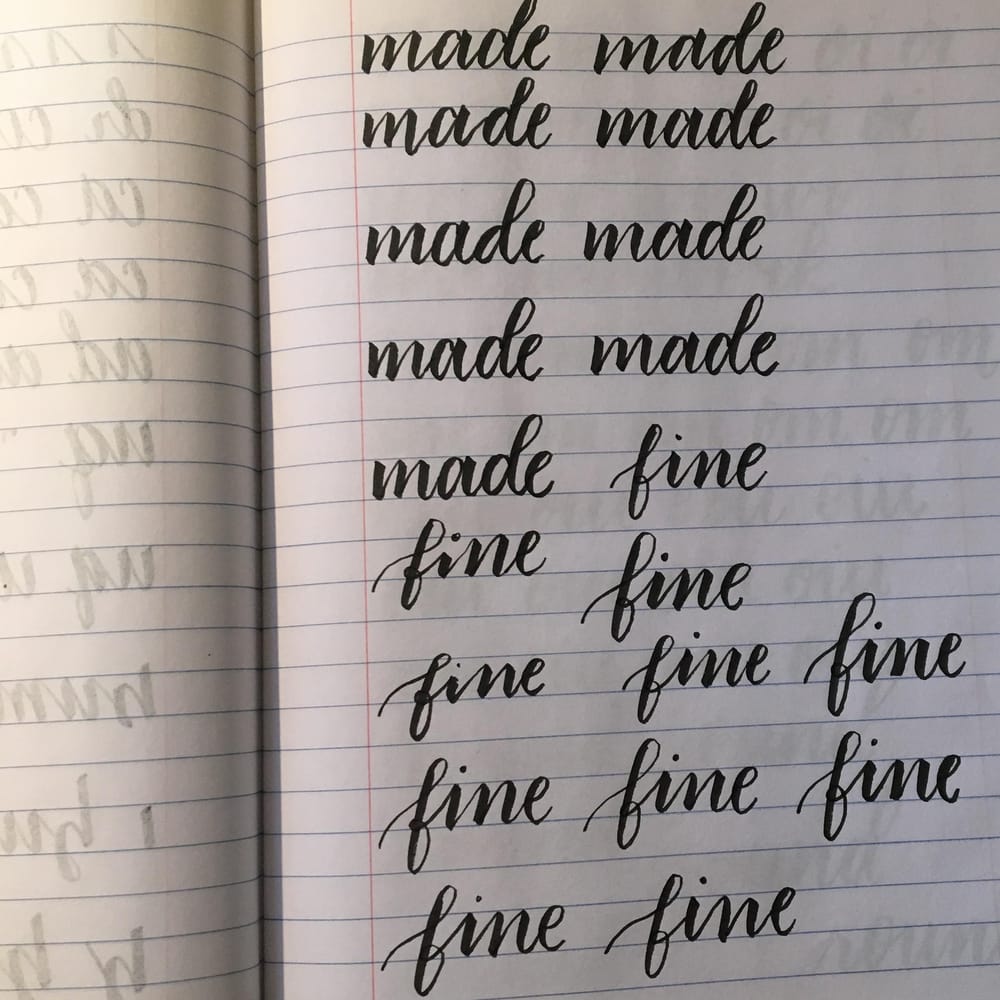 made made
made made
made made
made made
made fine
fine fine
fine fine fine
fine fine fine
fine fine